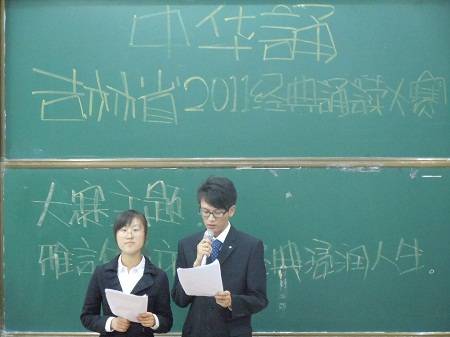 中华誦
吉林省2011经典誦读大赛
大赛主题
雅言 典浸润人生。